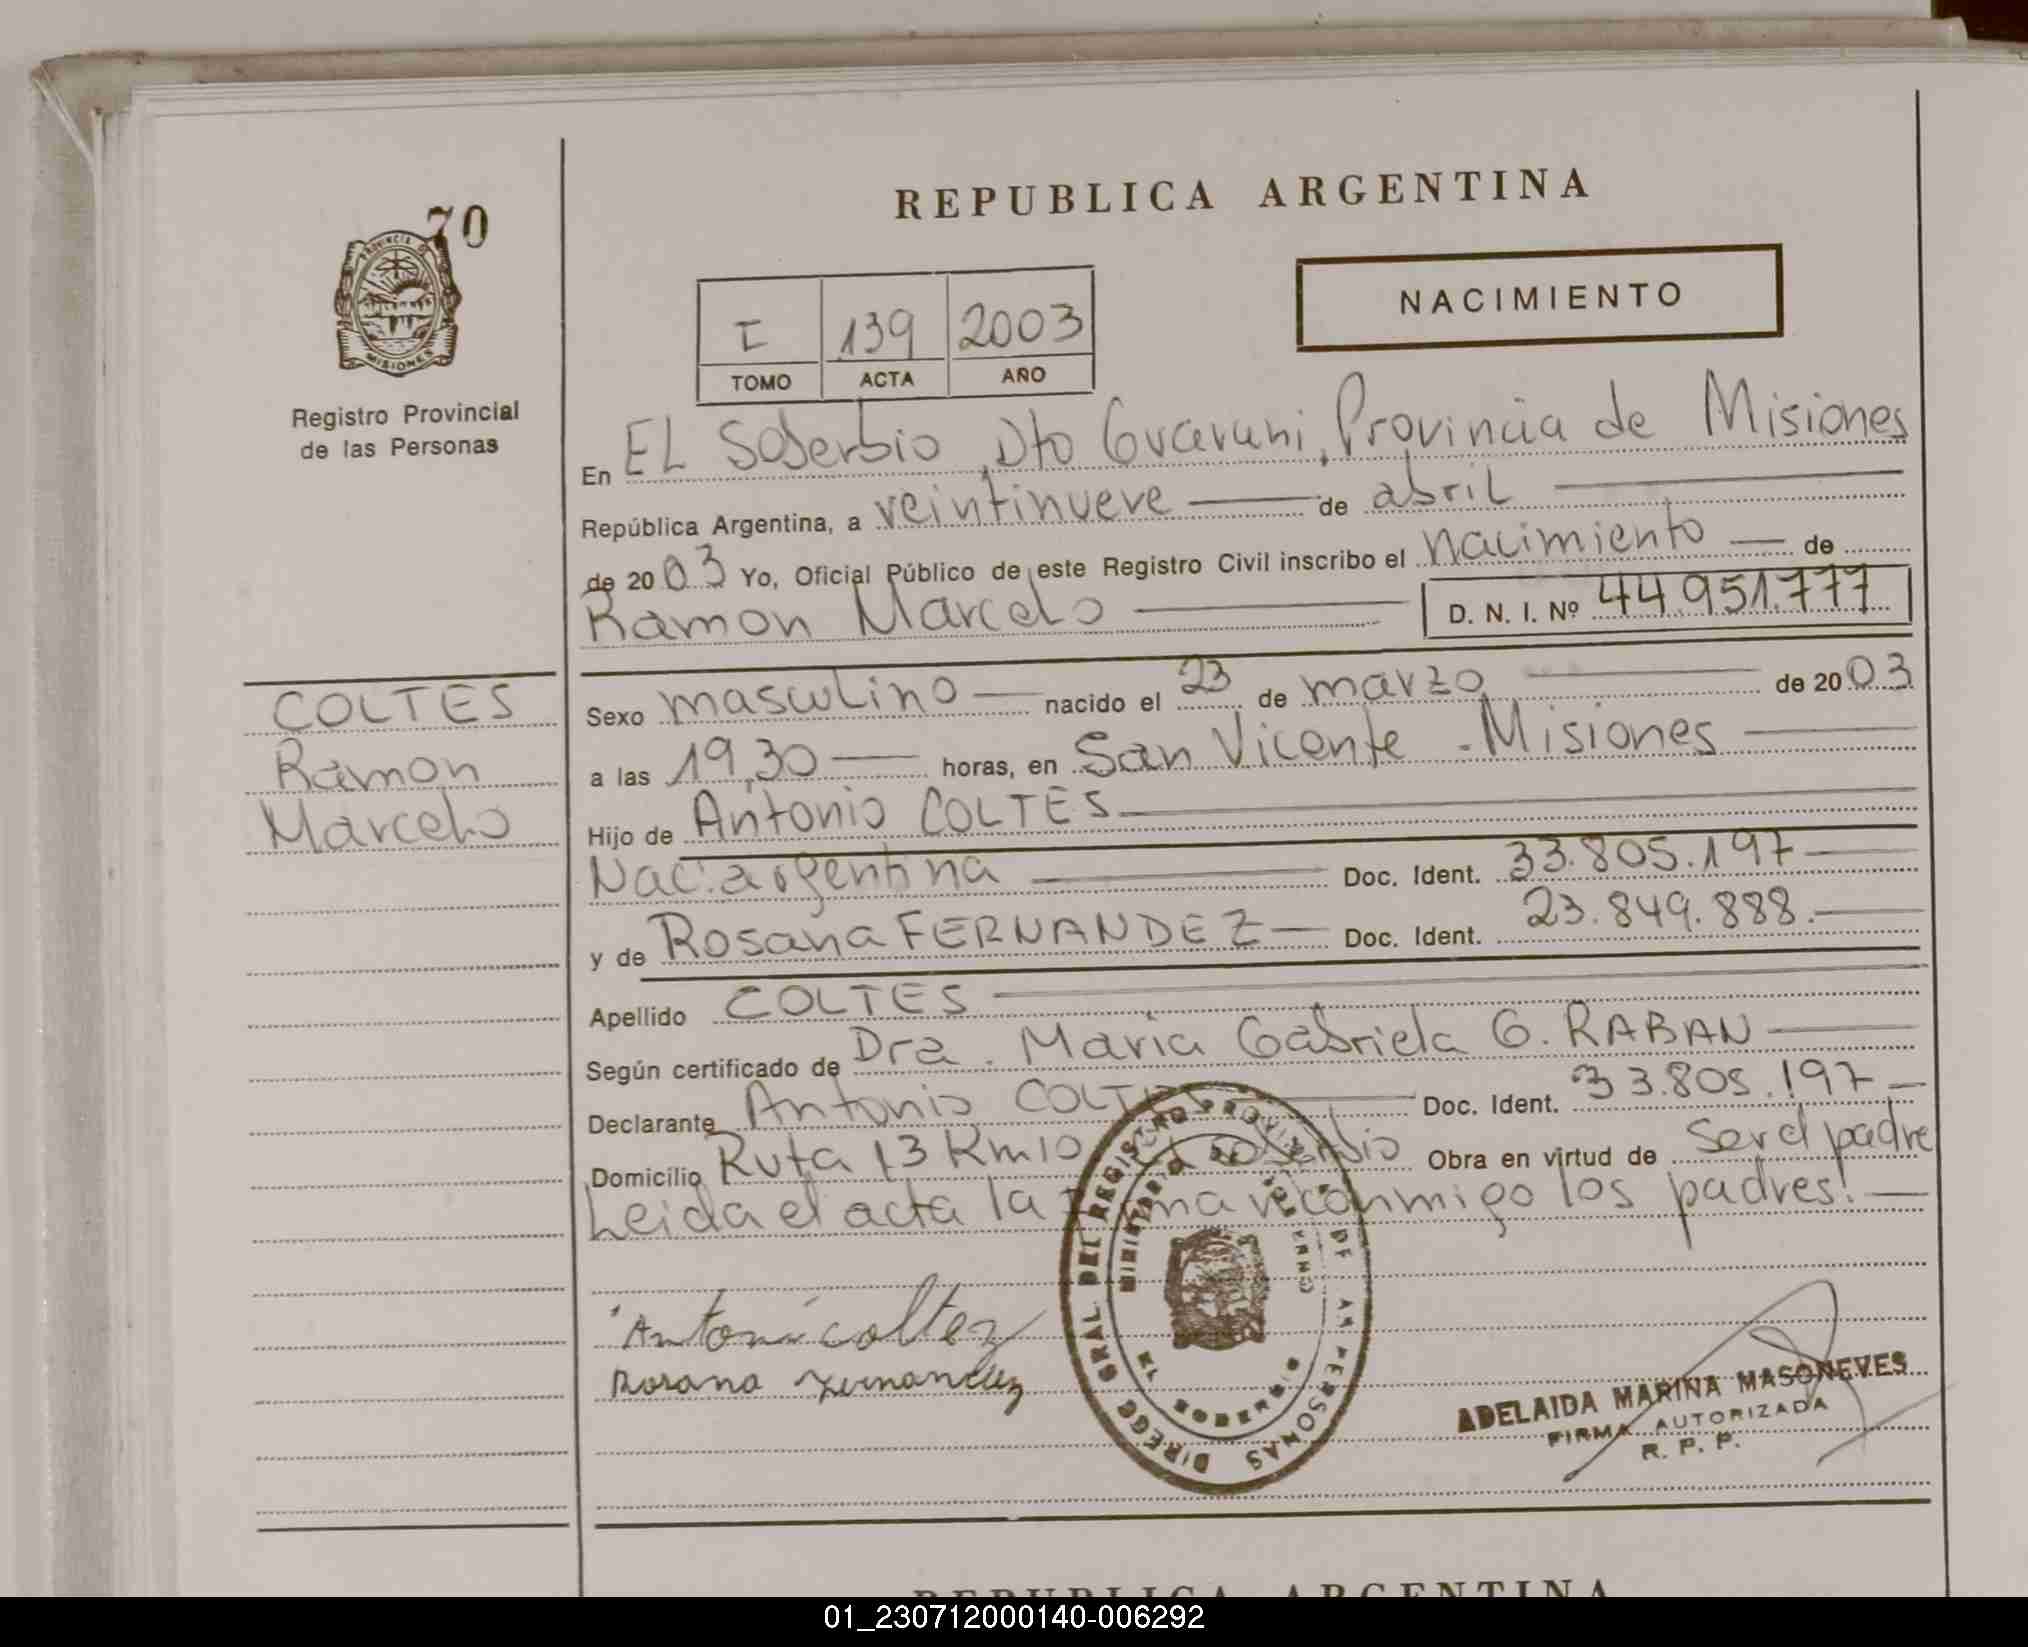 70
PROVINCIA DE
MISIONES
Registro Provincial
de las Personas
REPUBLICA ARGENTINA
NACIMIENTO
I 139 2003
TOMO ACTA AÑO
En EL Soberbio, Dto Guarani, Provincia de Misiones
República Argentina, a veintinueve de abril
de 2003 Yo, Oficial Público de este Registro Civil inscribo el nacimiento de
Ramon Marcelo D. N. I. Nº 44.951.777
COLTES
Ramon
Marcelo
Sexo masculino nacido el 23 de marzo de 2003
a las 19,30 horas, en San Vicente - Misiones
Hijo de Antonio COLTES
Nac. argentina Doc. Ident. 33.805.197
y de Rosana FERNANDEZ Doc. Ident. 23.849.888.
Apellido COLTES
Según certificado de Dra. Maria Gabriela G. RABAN
Declarante Antonio COLTES Doc. Ident. 33.805.197
Domicilio Ruta 13 Km 10 El Soberbio Obra en virtud de ser el padre
Leida el acta la firman conmigo los padres.
DIRECC GRAL DEL REGISTRO PROVINCIAL DE LAS PERSONAS
MINISTERIO DE GOBIERNO
EL SOBERBIO
Antoni coltez
Rosana Fernandez
ADELAIDA MARINA MASONEVES
FIRMA AUTORIZADA
R. P. P.
REPUBLICA ARGENTINA
01_230712000140-006292